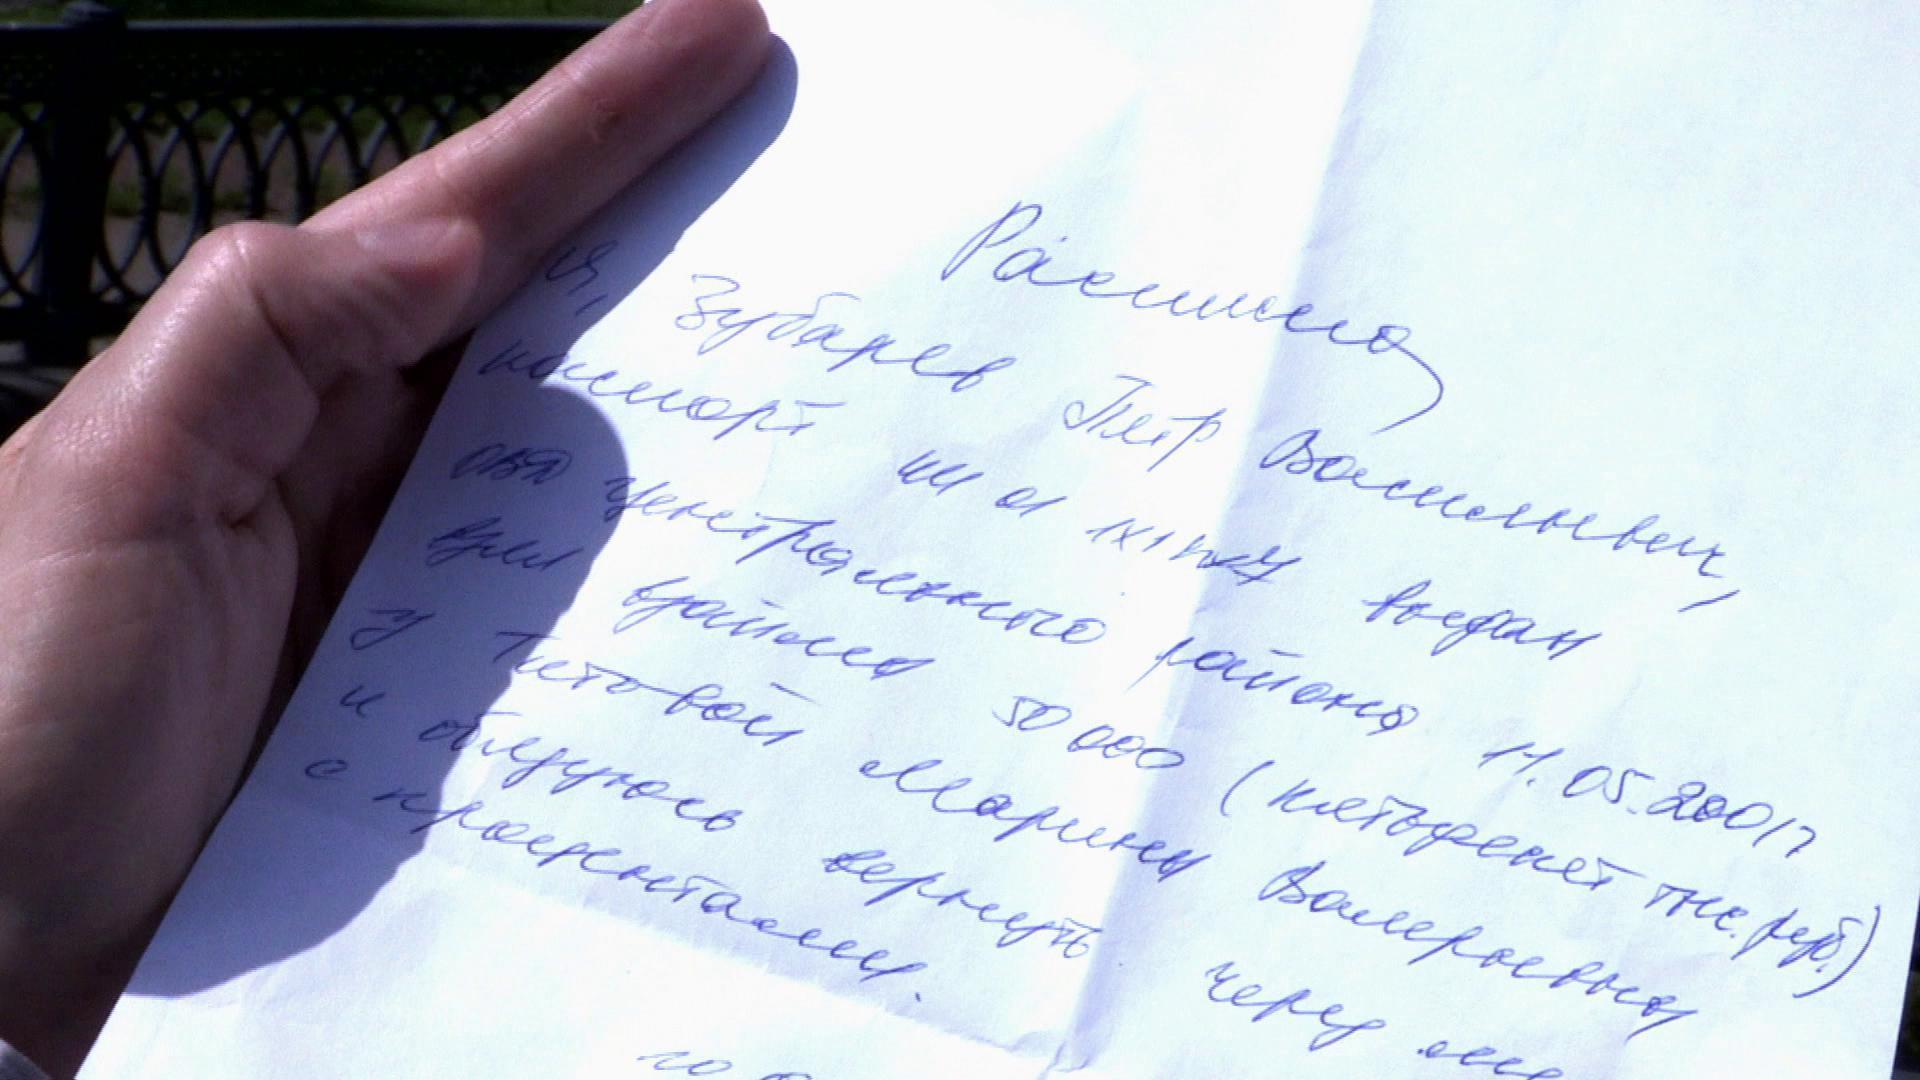 Расписка
Я, Зубарев Пётр Васильевич,
паспорт выдан
ОВД Центрального района 11.05.2001г
взял взаймы 50 000 (пятьдесят тыс. руб.)
у Титовой Марины Валерьевны
и обязуюсь вернуть через
с процентами.